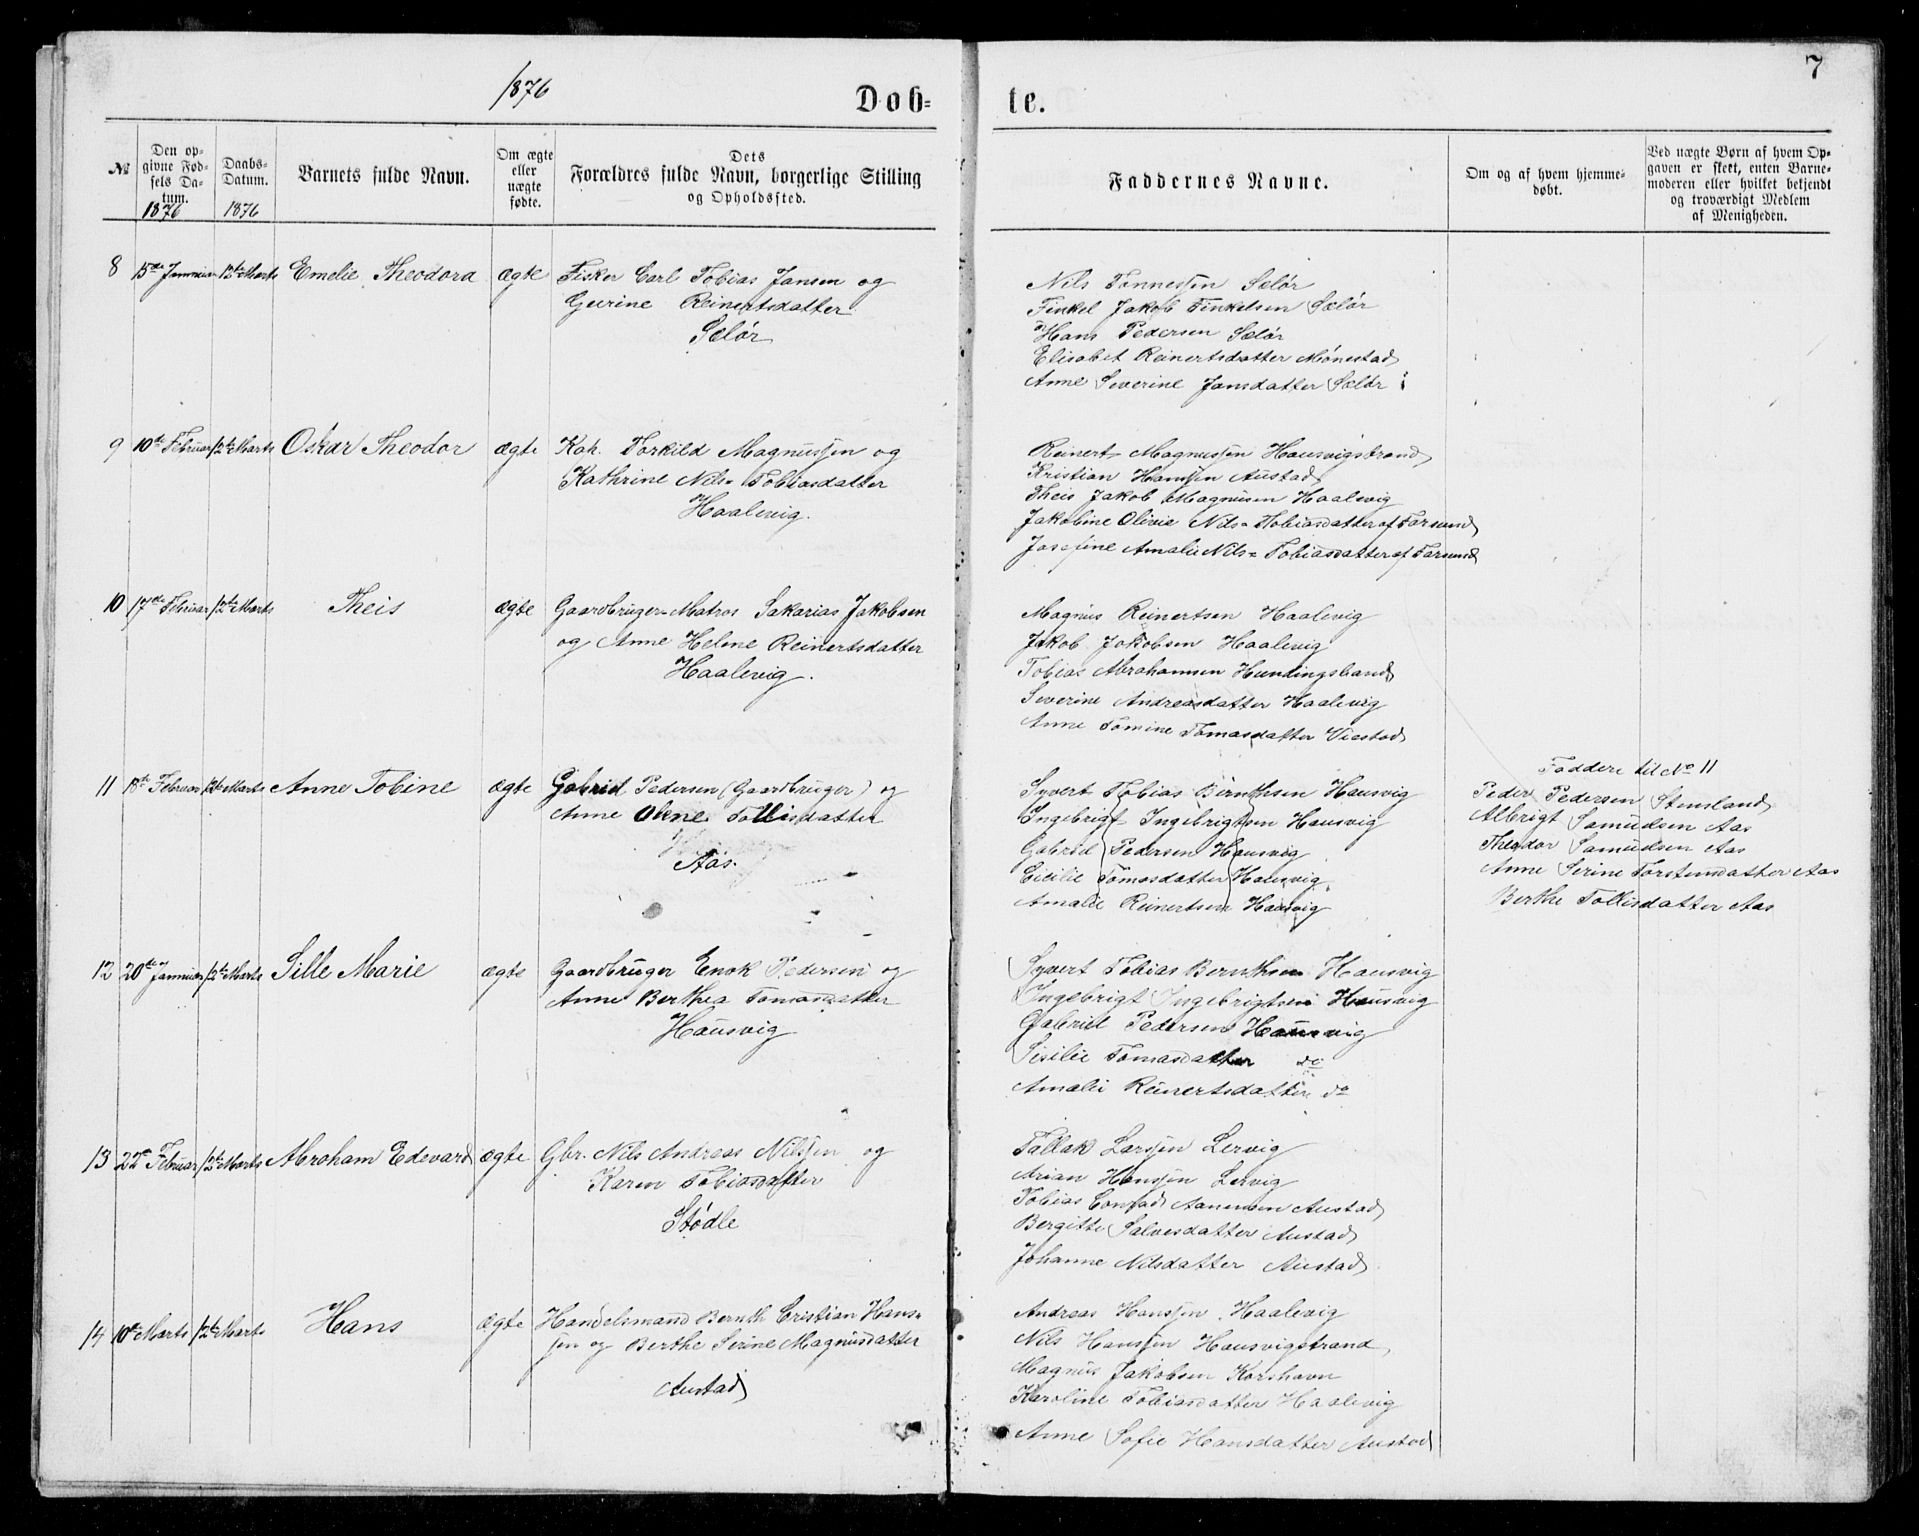 1876
7
Døb-
te.
№
Den op-
givne Fød-
sels Da-
tum.
1876
Daabs-
Datum.
1876
Barnets fulde Navn.
Om ægte
eller
uægte
fødte.
Dets
Forældres fulde Navn, borgerlige Stilling
og Opholdssted.
Faddernes Navne.
Om og af hvem hjemme-
døbt.
Ved uægte Børn af hvem Op-
gaven er skeet, enten Barne-
moderen eller hvilket bekjendt
og troværdigt Medlem
af Menigheden.
8 15de Januar 12te Marts Emelie Theodora ægte Fisker Carl Tobias Jansen og
Gurine Reinertsdatter
Sælør
Nils Tønnessen Selør
Finkel Jakob Finkelsen Sælør
Hans Pedersen Sælør
Elisabet Reinertsdatter Mønestad
Anne Severine Jansdatter Sælør
9 10de Februar 12te Marts Oskar Theodor ægte Torkild Magnussen og
Kathrine Nils-Tobiasdatter
Haalevig.
Reinert Magnussen Hausvigstrand
Kristian Hansen Austad
Theis Jakob Magnusen Haalevig
Jakobine Olivie Nils-Tobiasdatter af Farsund
Josefine Amalie Nils-Tobiasdatter af Farsund
10 17de Februar 12te Marts Theis ægte Gaardbruger-Matros Sakarias Jakobsen
og Anne Helene Reinertsdatter
Haalevig.
Magnus Reinertsen Haalevig
Jakob Jakobsen Haalevig
Tobias Abrahamsen Hundingsland
Severine Andreasdatter Haalevig
Anne Tomine Tomasdatter Viestad
11 18de Februar 12te Marts Anne Tobine ægte Gabriel Pedersen (Gaardbruger) og
Anne Olene Tollisdatter
Aas.
Syvert Tobias Bernthsen Hausvig
Ingebrigt Ingebrigtsen Hausvig
Gabriel Pedersen Hausvig
Cicilie Tomasdatter Hausvig
Amalie Reinertsen Hausvig
Faddere til No 11
Peder Pedersen Stensland
Albrigt Samuelsen Aas
Theodor Samuelsen Aas
Anne Serine Torstensdatter Aas
Berthe Tollisdatter Aas
12 20de Januar 12te Marts Sille Marie ægte Gaardbruger Enok Pedersen og
Anne Berthea Tomasdatter
Hausvig
Syvert Tobias Bernthsen Hausvig
Ingebrigt Ingebrigtsen Hausvig
Gabriel Pedersen Hausvig
Sisilie Tomasdatter do
Amalie Reinertsdatter do
13 22de Februar 12te Marts Abraham Edevard ægte Gbr. Nils Andreas Nilssen og
Karen Tobiasdatter
Stødle
Tallak Larsen Lervig
Arian Hansen Lervig
Tobias Conrad Aanensen Austad
Bergitte Salvesdatter Austad
Johanne Nilsdatter Austad
14 10de Marts 12te Marts Hans ægte Handelsmand Bernth Cristian Hans-
sen og Berthe Serine Magnusdatter
Austad
Andreas Hanssen Haalevig
Nils Hanssen Hausvigstrand
Magnus Jakobsen Korshavn
Karoline Tobiasdatter Haalevig
Anne Sofie Hansdatter Austad